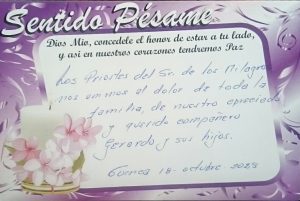 Sentido Pésame
Dios Mio, concedele el honor de estar a tu lado,
y asi en nuestros corazones tendremos Paz
Los Priostes del Sr. de los Milagros
nos unimos al dolor de toda la
familia, de nuestro apreciado
y querido compañero
Gerardo y sus hijos.
Cuenca 18 - octubre 2023